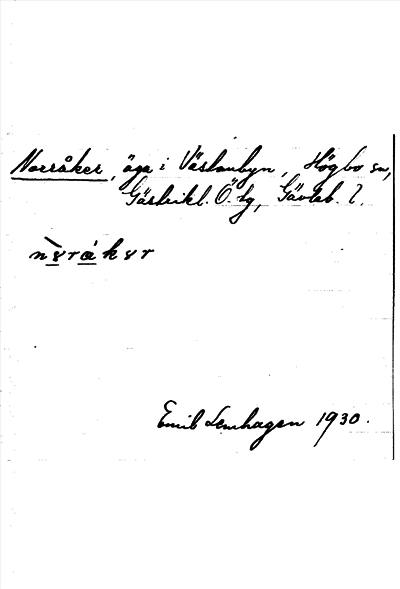 Norråker, äga i Västanbyn, Högbo sn,
Gästrikl. Ö. tg, Gävleb. l.
Emil Lenhagen 1930.